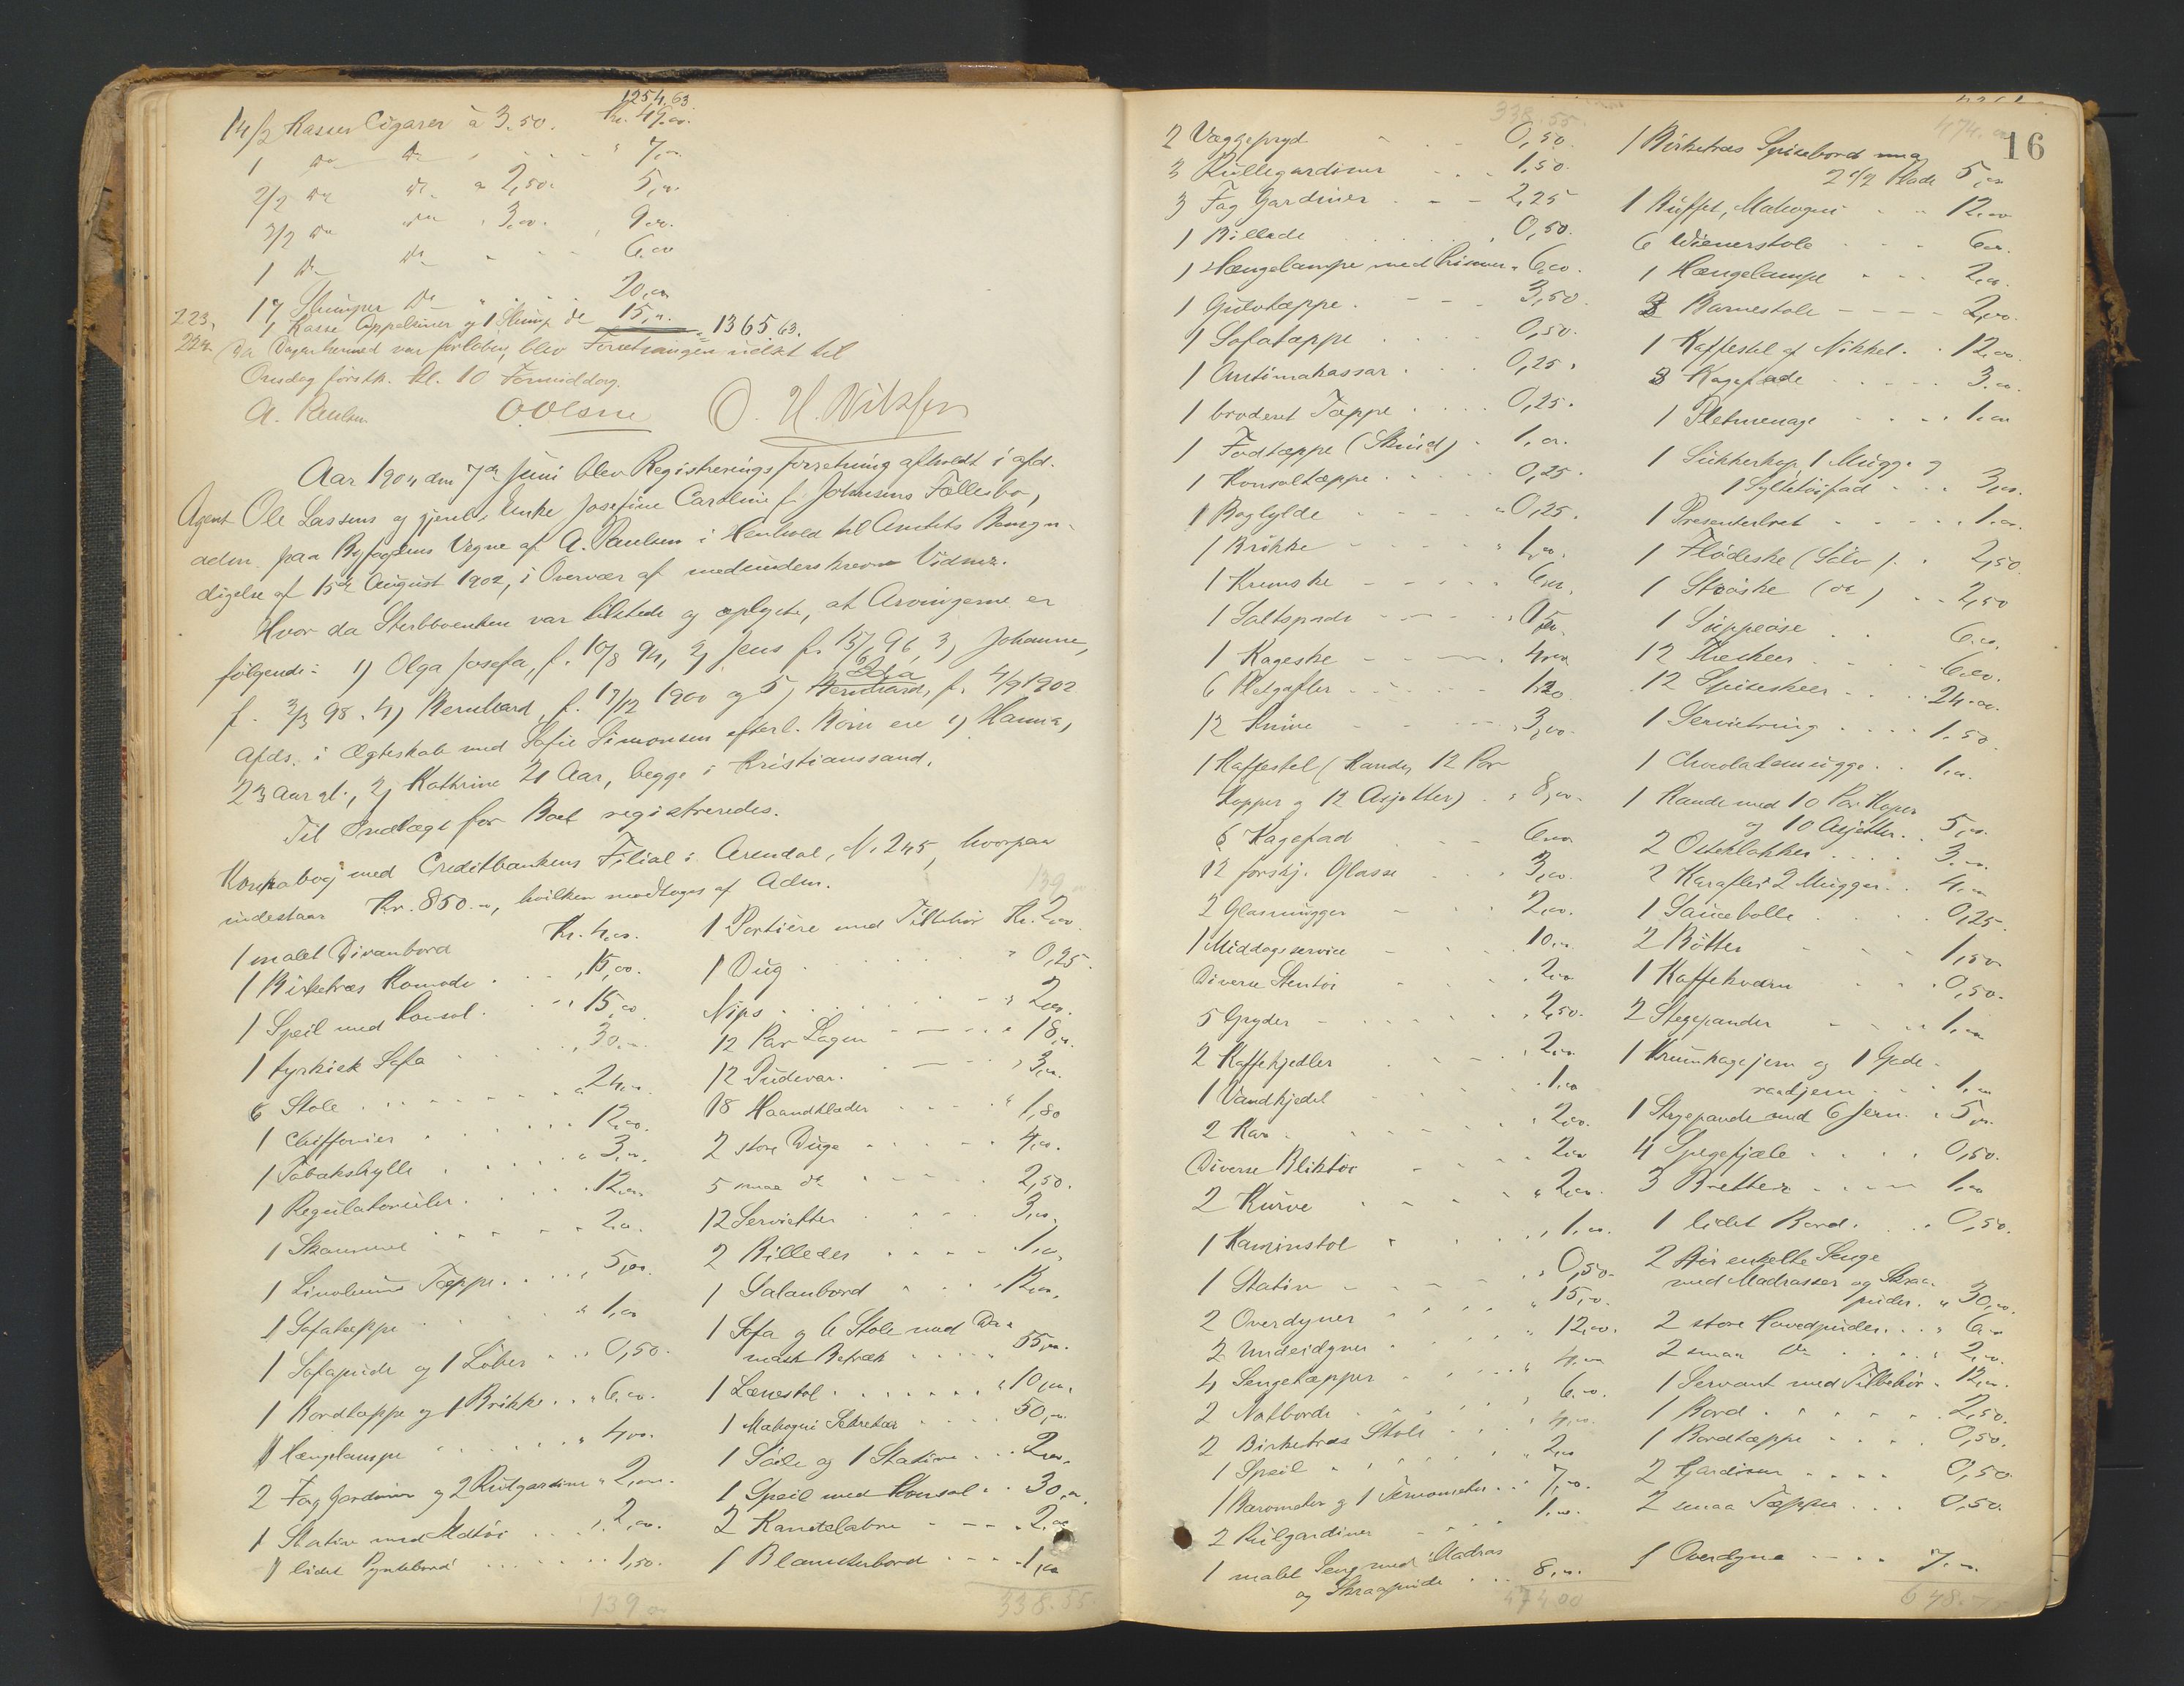 1254.63
14/2 Kasser Cigarer à 3.50. Kr. 49.00.
1 Do Do " 7,00
2/2 Do Do a 2,50. 5,00.
3/2 Do Do " 3,00. " 9.00.
1 Do Do 6.00
17 Stumper Do " 20,00
223, 1 Kasse Appelsiner og 1 Stump do 15,00. " 1365,63.
224. Da Dagen hermed var forløben, blev Forretningen udsat til
Onsdag førstk. Kl. 10 Formiddag.
A. Paulsen O. Olsen O. H. Nilsen
Aar 1904 den 7de Juni blev Registreringsforretning afholdt i afd.
Agent Ole Lassens og gjenl. Enke Josefine Caroline f. Johnsens Fællesbo,
adm. paa Byfogdens Vegne af A. Paulsen i Henhold til Amtets Bemyn-
digelse af 15de August 1902, i Overvær af medunderskrevne Vidner.
Hvor da Sterbboenken var tilstede og oplyste, at Arvingerne er
følgende: 1) Olga Josefa, f. 10/8 94, 2) Jens f. 15/6 96, 3) Johanne,
f. 3/3 98. 4) Bernhard, f. 17/12 1900 og 5) Bernhard, f. 4/9 1902
Afds. i Ægteskab med Sofie Simonsen efterl. Børn ere 1) Hanna,
23 Aar gl., 2) Kathrine 21 Aar, begge i Kristianssand.
Til Indtægt for Boet registreredes.
Kontrabog med Creditbankens Filial i Arendal, N. 245, hvorpaa
indestaar Kr. 850.00, hvilken modtoges af Adm.
139,00
1 malet Divanbord Kr. 4,00.
1 Birketræs Komode " 15,00.
1 Speil med Konsol " 15,00
1 tyrkisk Sofa " 30.00
6 Stole " 24,00
1 Chiffonier 12,00.
1 Tobakshylle " 3,00.
1 Regulatoruhr 12,00
1 Skammel 2.00.
1 Linoleums Tæppe " 5,00.
1 Sofatæppe " 1,00
1 Sofapude og 1 Løber 0,50.
1 Bordtæppe og 1 Brikke " 6,00.
1 Hængelampe " 4,00.
2 Fag Gardiner og 2 Rulgardiner " 2,00.
1 Stativ med Idtøi " 2,00.
1 lidet Pyntebord 1,50.
139 00
1 Portiere med Tilbehør Kr. 2,00.
1 Dug " 0,25.
Nips " 2,00.
12 Par Lagen " 18,00.
12 Pudevar " 3,00.
18 Haandklæder " 1,80
2 store Duge 4,00.
5 smaa do 2,50.
12 Servietter 3,00.
2 Billeder 1,00
1 Salonbord " 12,00.
1 Sofa og 6 Stole med Da-
mask Betræk 55,00.
1 Lænestol " 10,00.
1 Mahogni Sekretær 50,00.
1 Søile og 1 Stativ 2,00.
1 Speil med Konsol 30,00
2 Kandelabre " 2,00
1 Blomsterbord 1,00
338.55
338.55
2 Væggepryd 0,50.
3 Rullegardiner 1,50.
3 Fag Gardiner 2,25
1 Billede 0,50.
1 Hængelampe med Prismer " 6,00.
1 Gulvtæppe 3,50.
1 Sofatæppe 0,50.
1 Antimakassar 0,25.
1 broderet Tæppe 0,25.
1 Fodtæppe (Skind) 1,00.
1 Konsoltæppe 0,25.
1 Boghylde " 0,25.
1 Brikke " 1,00.
1 Kumske 6,00,
1 Saltspade
1 Kageske " 4,00
6 Pletgafler 1,20
12 Knive " 3,00.
1 Kaffestel (Kande, 12 Par
kopper og 12 Asjetter) " 8,00.
6 Kagefad 6,00
12 forskj. Glasse " 3,00.
2 Glasmugger " 2,00.
1 Middagsservice 10,00
Diverse Stentøi " 2,00
5 Gryder " 2,50.
2 Kaffekjedler " 2,00
1 Vandkjedel " 1,00
2 Kar " 2,00.
Diverse Bliktøi 2,00
2 Kurve " 2,00.
1 Kaminstol " 1,00.
1 Stativ " 0,50.
2 Overdyner " 15,00.
2 Underdyner " 12,00.
4 Sengetæpper " 4,00
2 Natborde " 6,00.
2 Birketræs Stole " 4,00.
1 Speil " 2,00
1 Barometer og 1 Termometer 7,00.
2 Rulgardiner 1,00.
1 malet Seng med Madras
og Skraapude 8,00.
474 00
474.00
16
1 Birketræs Spisebord mag
2 1/2 Plade 5,00
1 Buffet, Mahogni 12,00
6 Wienerstole 6,00.
1 Hængelampe 2,00.
3 Barnestole 2,00.
1 Kaffestel af Nikkel 12,00.
3 Kagefade 3,00.
1 Pletmenage 1,00
1 Sukkerkop, 1 Mugge og
1 Syltetøifad 3,00.
1 Presenterbret 1,00.
1 Flødeske (Sølv) 2,50
1 Strøske (do) 2,50
1 Suppeøse 6,00.
12 Theskeer 6,00.
12 Spiseskeer 24.00.
1 Servietring 1,50.
1 Chocolademugge 1,00.
1 Kande med 10 Par Koper
og 10 Asjetter 5,00.
2 Osteklokker 3,00.
2 Karafler 2 Mugger 4,00
1 Sauceboll 0,25.
2 Bøtter 1,50
1 Kaffekværn 0,50.
2 Stegepander 1,00
1 Krumkagejern og 1 Gode-
raadjern 1,00
1 Strygepande med 6 Jern " 5,00.
4 Spegefjæle 0,50.
3 Bretter 1,00
1 lidet Bord 0,50.
2 enkelte Senge
med Madrasser og Skraa-
puder " 30,00.
2 store Hovedpuder " 6,00
2 smaa Do " 2,00.
1 Servant med Tilbehør " 12,00.
1 Bord 2,50.
1 Bordtæppe 0,50.
2 Gardiner 0,50
2 smaa Tæpper 0,50.
1 Overdyne 7,00.